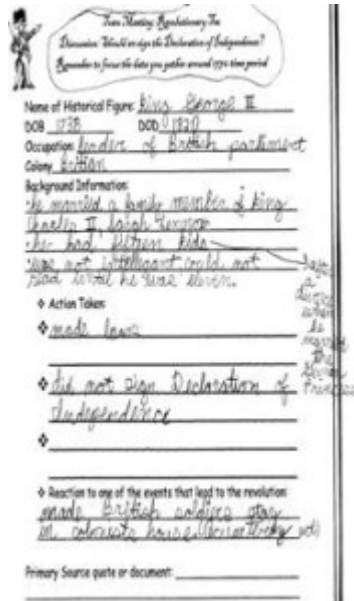 Town Meeting: Revolutionary Tea
Discussion: Would you sign the Declaration of Independence?
Remember to focus the data you gather around 1772 time period
Name of Historical Figure: King George III
DOB 1738 DOD 1820
Occupation: leader of British parliment
Colony Britian
Background Information:
he married a family member of king
Charles II, Sarah Lennox
he had fifteen kids
was not intelligent could not
read until he was eleven.
have
a
divorce
when
he
married
the
Princess
❖ Action Taken:
❖ made laws
❖ did not sign Declaration of
Independence
❖
❖ Reaction to one of the events that lead to the revolution:
made British soldiers stay
in colonists house (quartering act)
Primary Source quote or document: